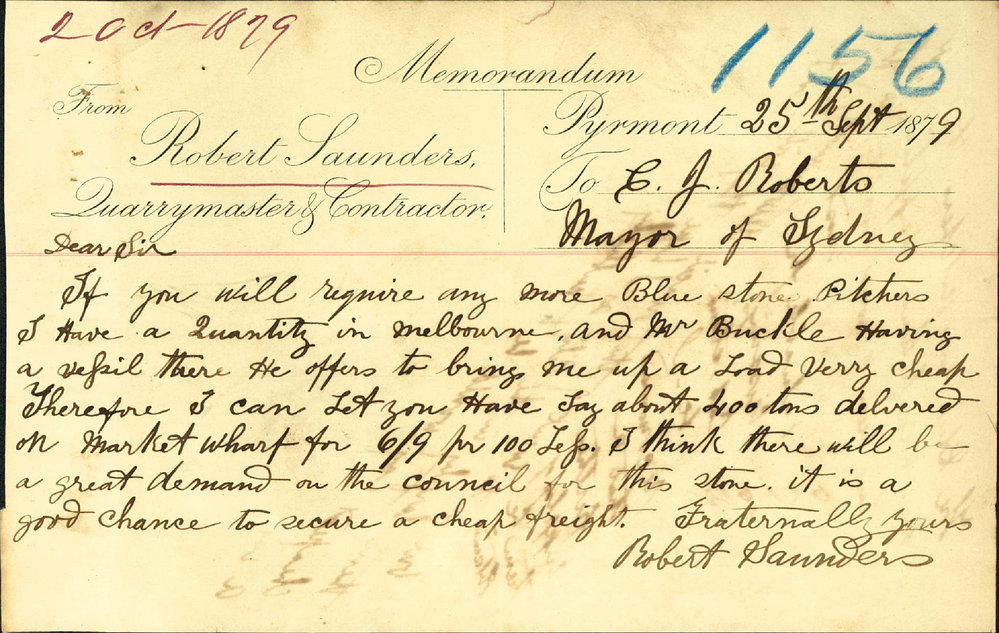 2 Oct-1879
1156
Memorandum
From
Robert Saunders,
Quarrymaster & Contractor.
Pyrmont 25th Sept 1879
To C. J. Roberts
Mayor of Sydney
Dear Sir
If you will require any more Blue stone Pitchers
I Have a Quantity in Melbourne, and Mr Buckle Having
a vessil there He offers to bring me up a Load Verry cheap
Therefore I can Let you Have Say about 400 tons delvered
on Market Wharf for 6/9 pr 100 Less. I think there will be
a great demand on the council for this stone. it is a
good chance to secure a cheap freight. Fraternally yours
Robert Saunders